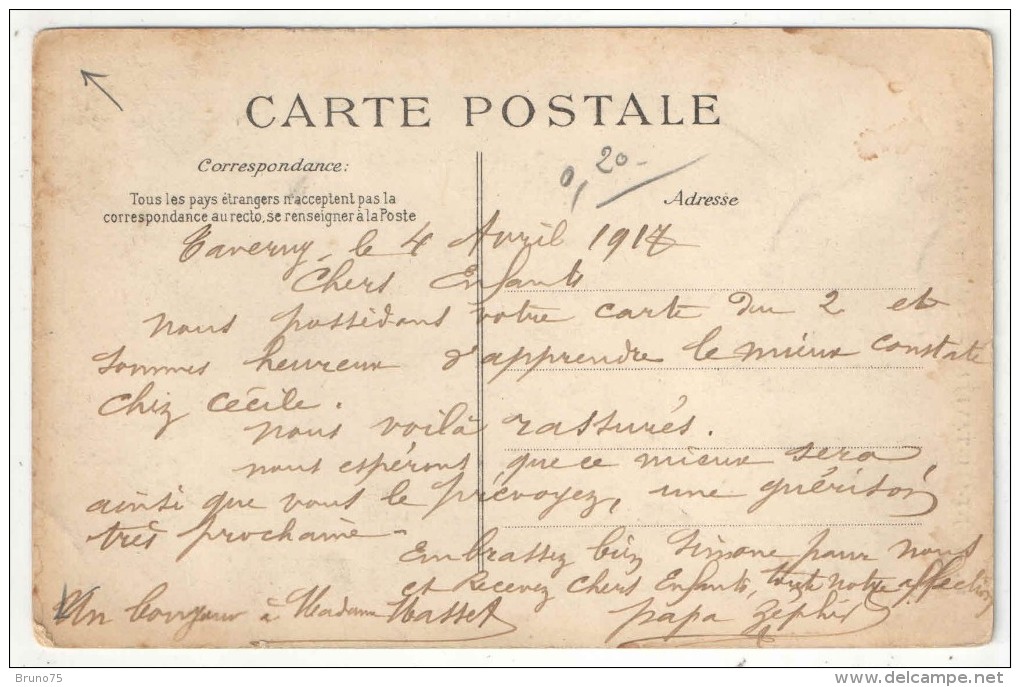 CARTE POSTALE
Correspondance:
0,20-
Adresse
Tous les pays étrangers n'acceptent pas la
correspondance au recto, se renseigner à la Poste
Taverny, le 4 Avril 1917
Chers Enfants
nous possédons votre carte du 2 et
sommes heureux d'apprendre le mieux constaté
chez Cécile.
nous voilà rassurés.
nous espérons que ce mieux sera,
ainsi que vous le prévoyez, une guérison
très prochaine -
Embrassez bien Simone pour nous
et Recevez Chers Enfants, toute notre affection
Un bonjour à Madame Masset papa Zéphir
Bruno75
delcampe.net